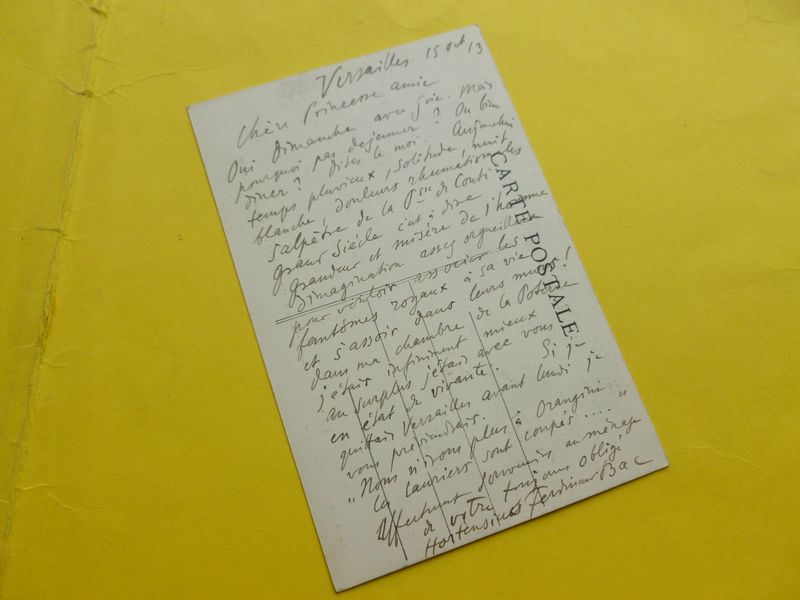 Versailles 15 oct 13
Chère Princesse amie
Oui Dimanche avec joie. Mais
pourquoi pas dejeuner ? Ou bien
diner ? Dites le moi ! Aujourdhui
temps pluvieux, solitude, nuit
blanche, douleurs rhumatismales
Salpêtre de la Psse de Conti
grand Siècle c'est à dire
grandeur et misère de l'homme
Dimagination assez orgueilleux
pour vouloir associer les
fantômes royaux à sa vie
et s'assoir dans leurs murs !
dans ma chambre de la Poterne
j'étais infiniment mieux
au surplus j'étais avec vous
en état de vivante. Si je
quittais Versailles avant lundi je
vous préviendrais.
"Nous n'irons plus à Orangini
les lauriers sont coupés .... "
Affectueux souvenirs au ménage
de votre toujours obligé
Hortensius Ferdinand Bac
CARTE POSTALE